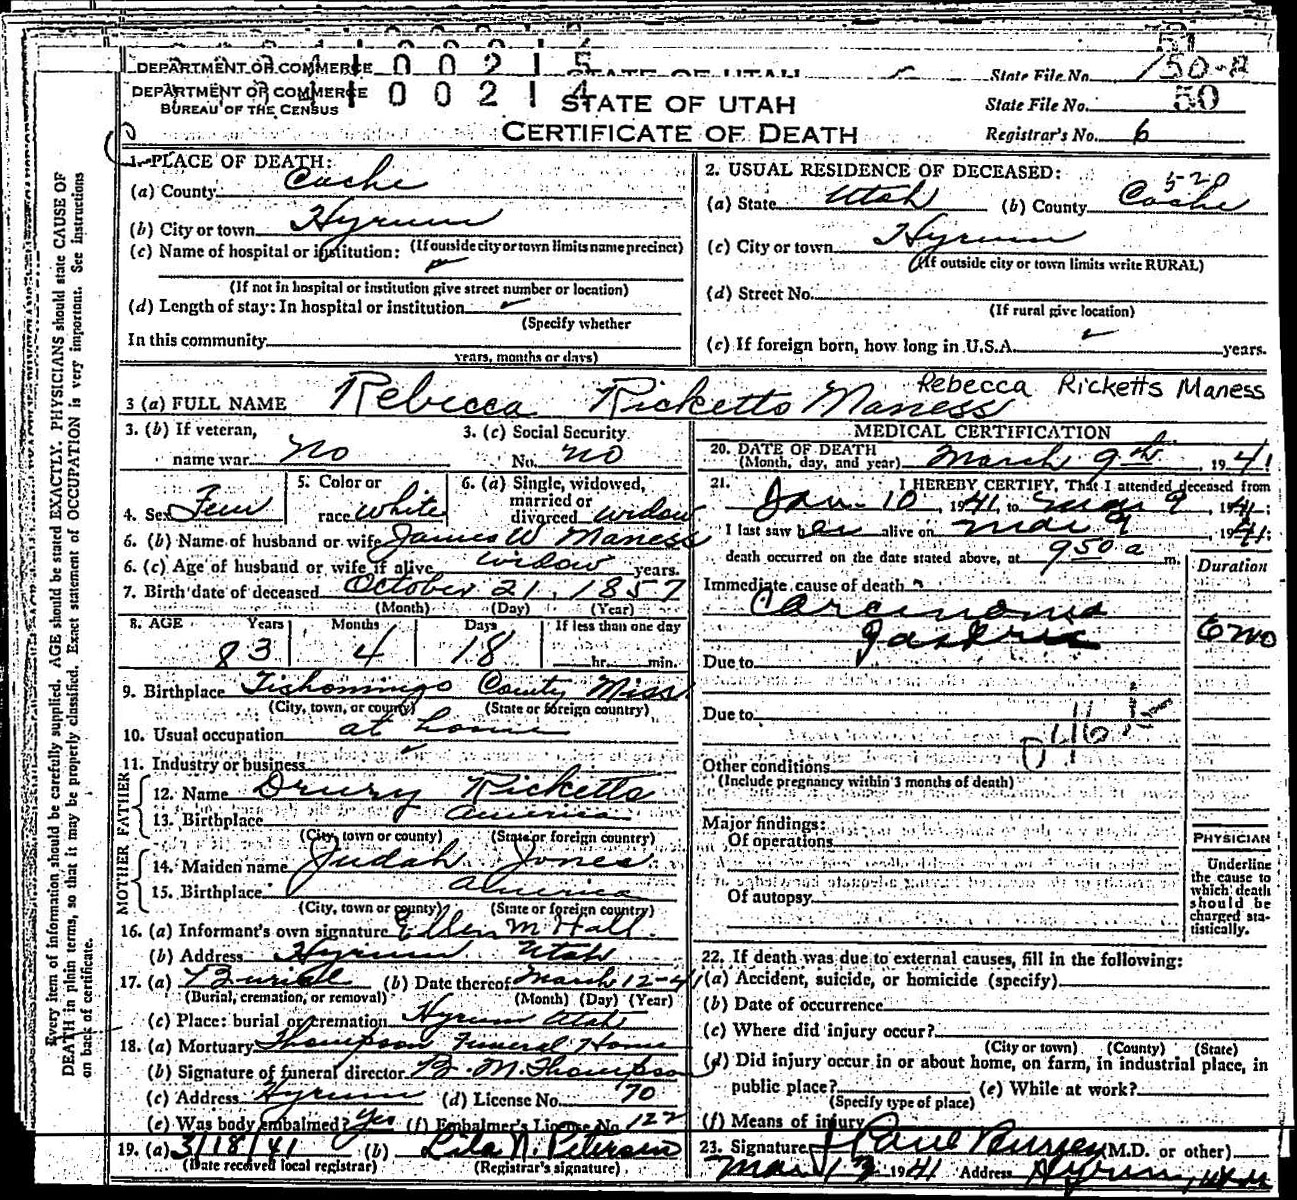 DEPARTMENT OF COMMERCE
0 0 2 1 5
STATE OF UTAH
State File No. 150-2
DEPARTMENT OF COMMERCE
BUREAU OF THE CENSUS
0 0 2 1 4
STATE OF UTAH
State File No. 50
CERTIFICATE OF DEATH
Registrar's No. 6
1. PLACE OF DEATH:
(a) County Cache
(b) City or town Hyrum
(If outside city or town limits name precinct)
(c) Name of hospital or institution:
(If not in hospital or institution give street number or location)
(d) Length of stay: In hospital or institution
(Specify whether
In this community
years, months or days)
2. USUAL RESIDENCE OF DECEASED:
520
(a) State Utah (b) County Cache
(c) City or town Hyrum
(If outside city or town limits write RURAL)
(d) Street No.
(If rural give location)
(e) If foreign born, how long in U.S.A. years.
3 (a) FULL NAME Rebecca Ricketts Maness
Rebecca Ricketts Maness
3. (b) If veteran, name war No
3. (c) Social Security No. no
4. Sex Fem
5. Color or race white
6. (a) Single, widowed, married or divorced widow
6. (b) Name of husband or wife James W Maness
6. (c) Age of husband or wife if alive widow years.
7. Birth date of deceased October 21, 1857
(Month) (Day) (Year)
8. AGE Years Months Days If less than one day
83 4 18 hr. min.
9. Birthplace Tishomingo County Miss
(City, town, or county) (State or foreign country)
10. Usual occupation at home
11. Industry or business
FATHER
12. Name Drury Ricketts
13. Birthplace America
(City, town or county) (State or foreign country)
MOTHER
14. Maiden name Judah Jones
15. Birthplace America
(City, town or county) (State or foreign country)
16. (a) Informant's own signature Ellen M Hall.
(b) Address Hyrum Utah
17. (a) Burial (b) Date thereof March 12-41
(Burial, cremation, or removal) (Month) (Day) (Year)
(c) Place: burial or cremation Hyrum Utah
18. (a) Mortuary Thompson Funeral Home
(b) Signature of funeral director B. M. Thompson
(c) Address Hyrum (d) License No. 70
(e) Was body embalmed? Yes (f) Embalmer's License No. 122
19. (a) 3/18/41 (b) Lila N. Petersen
(Date received local registrar) (Registrar's signature)
MEDICAL CERTIFICATION
20. DATE OF DEATH
(Month, day, and year) March 9th, 1941
21. I HEREBY CERTIFY, That I attended deceased from
Jan. 10, 1941, to Mar 9, 1941;
I last saw her alive on Mar 9, 1941;
death occurred on the date stated above, at 950 a m.
Duration
Immediate cause of death
Carcinoma
gastric
6 mo
Due to
Due to
Other conditions
(Include pregnancy within 3 months of death)
Major findings:
Of operations
Of autopsy
PHYSICIAN
Underline
the cause to
which death
should be
charged sta-
tistically.
22. If death was due to external causes, fill in the following:
(a) Accident, suicide, or homicide (specify)
(b) Date of occurrence
(c) Where did injury occur?
(City or town) (County) (State)
(d) Did injury occur in or about home, on farm, in industrial place, in
public place? (e) While at work?
(Specify type of place)
(f) Means of injury
23. Signature (M.D. or other)
Mar 1941 Address Hyrum, Utah
Every item of information should be carefully supplied. AGE should be stated EXACTLY. PHYSICIANS should state CAUSE OF
DEATH in plain terms, so that it may be properly classified. Exact statement of OCCUPATION is very important. See Instructions
on back of certificate.